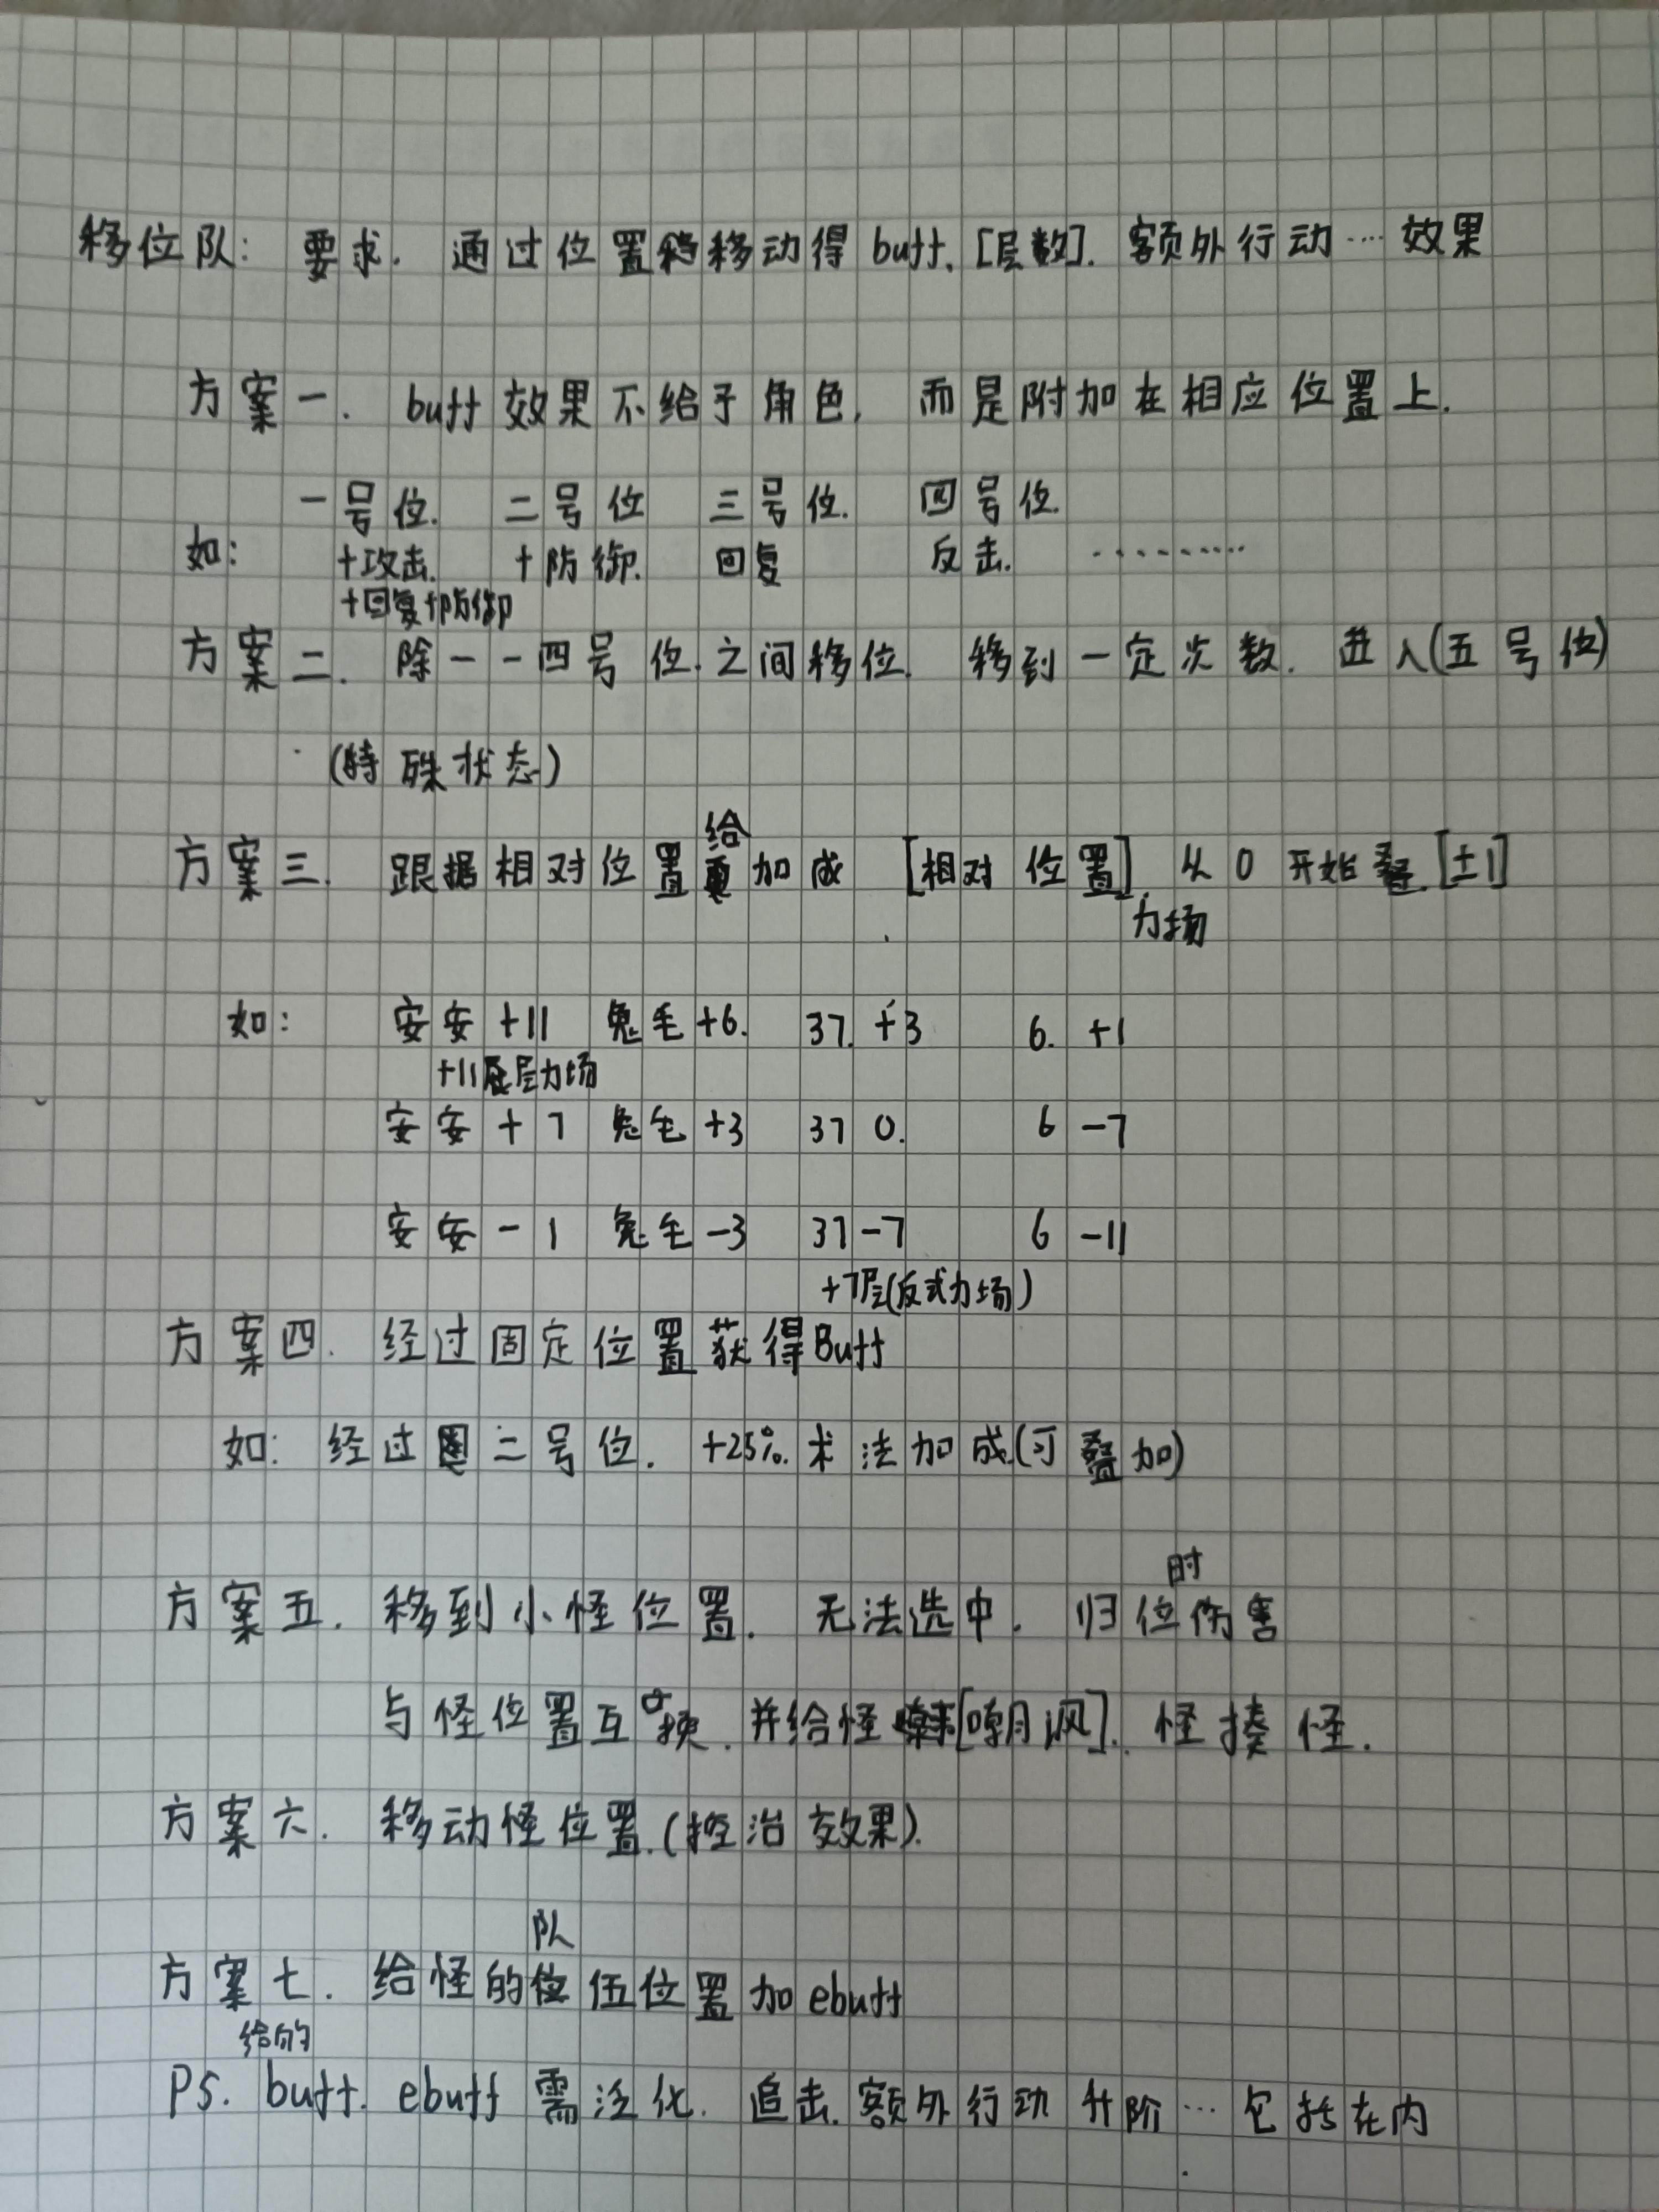 移位队: 要求. 通过位置移动得buff. [层数]. 额外行动…效果
方案一. buff效果不给予角色, 而是附加在相应位置上.
一号位. 二号位 三号位. 四号位.
如: +攻击. +防御. 回复 反击. ………
+回复+防御
方案二. 除一-四号位之间移位. 移到一定次数. 进入(五号位)
(特殊状态)
给
方案三. 跟据相对位置加成 [相对位置] 从0开始叠.[±1]
力场
如: 安安+11 兔毛+6. 37.+3 6.+1
+11层力场
安安+7 兔毛+3 37 0. 6 -7
安安-1 兔毛-3 37-7 6 -11
+7层(反式力场)
方案四. 经过固定位置获得Buff
如: 经过二号位. +25%.术法加成(可叠加)
时
方案五. 移到小怪位置. 无法选中. 归位伤害
与怪位置互换. 并给怪[嘲讽]. 怪揍怪.
方案六. 移动怪位置.(控治效果).
队
方案七. 给怪的伍位置加ebuff
给的
PS. buff. ebuff需泛化. 追击. 额外行动 升阶…包括在内